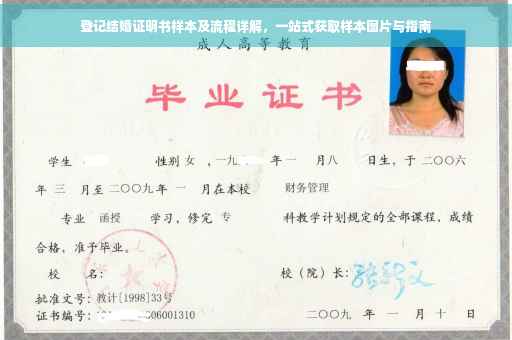 登记结婚证明书样本及流程详解，一站式获取样本图片与指南
成人高等教育
毕业证书
学生 性别 女 ，一九 年 一 月 八 日生，于 二〇〇六
年 三 月至 二〇〇九 年 一 月在本校 财务管理
专业 函授 学习，修完 专 科教学计划规定的全部课程，成绩
合格，准予毕业。
校 名： 校（院）长：
批准文号：教计[1998]33号
证书编号： 06001310 二〇〇九 年 一 月 十 日